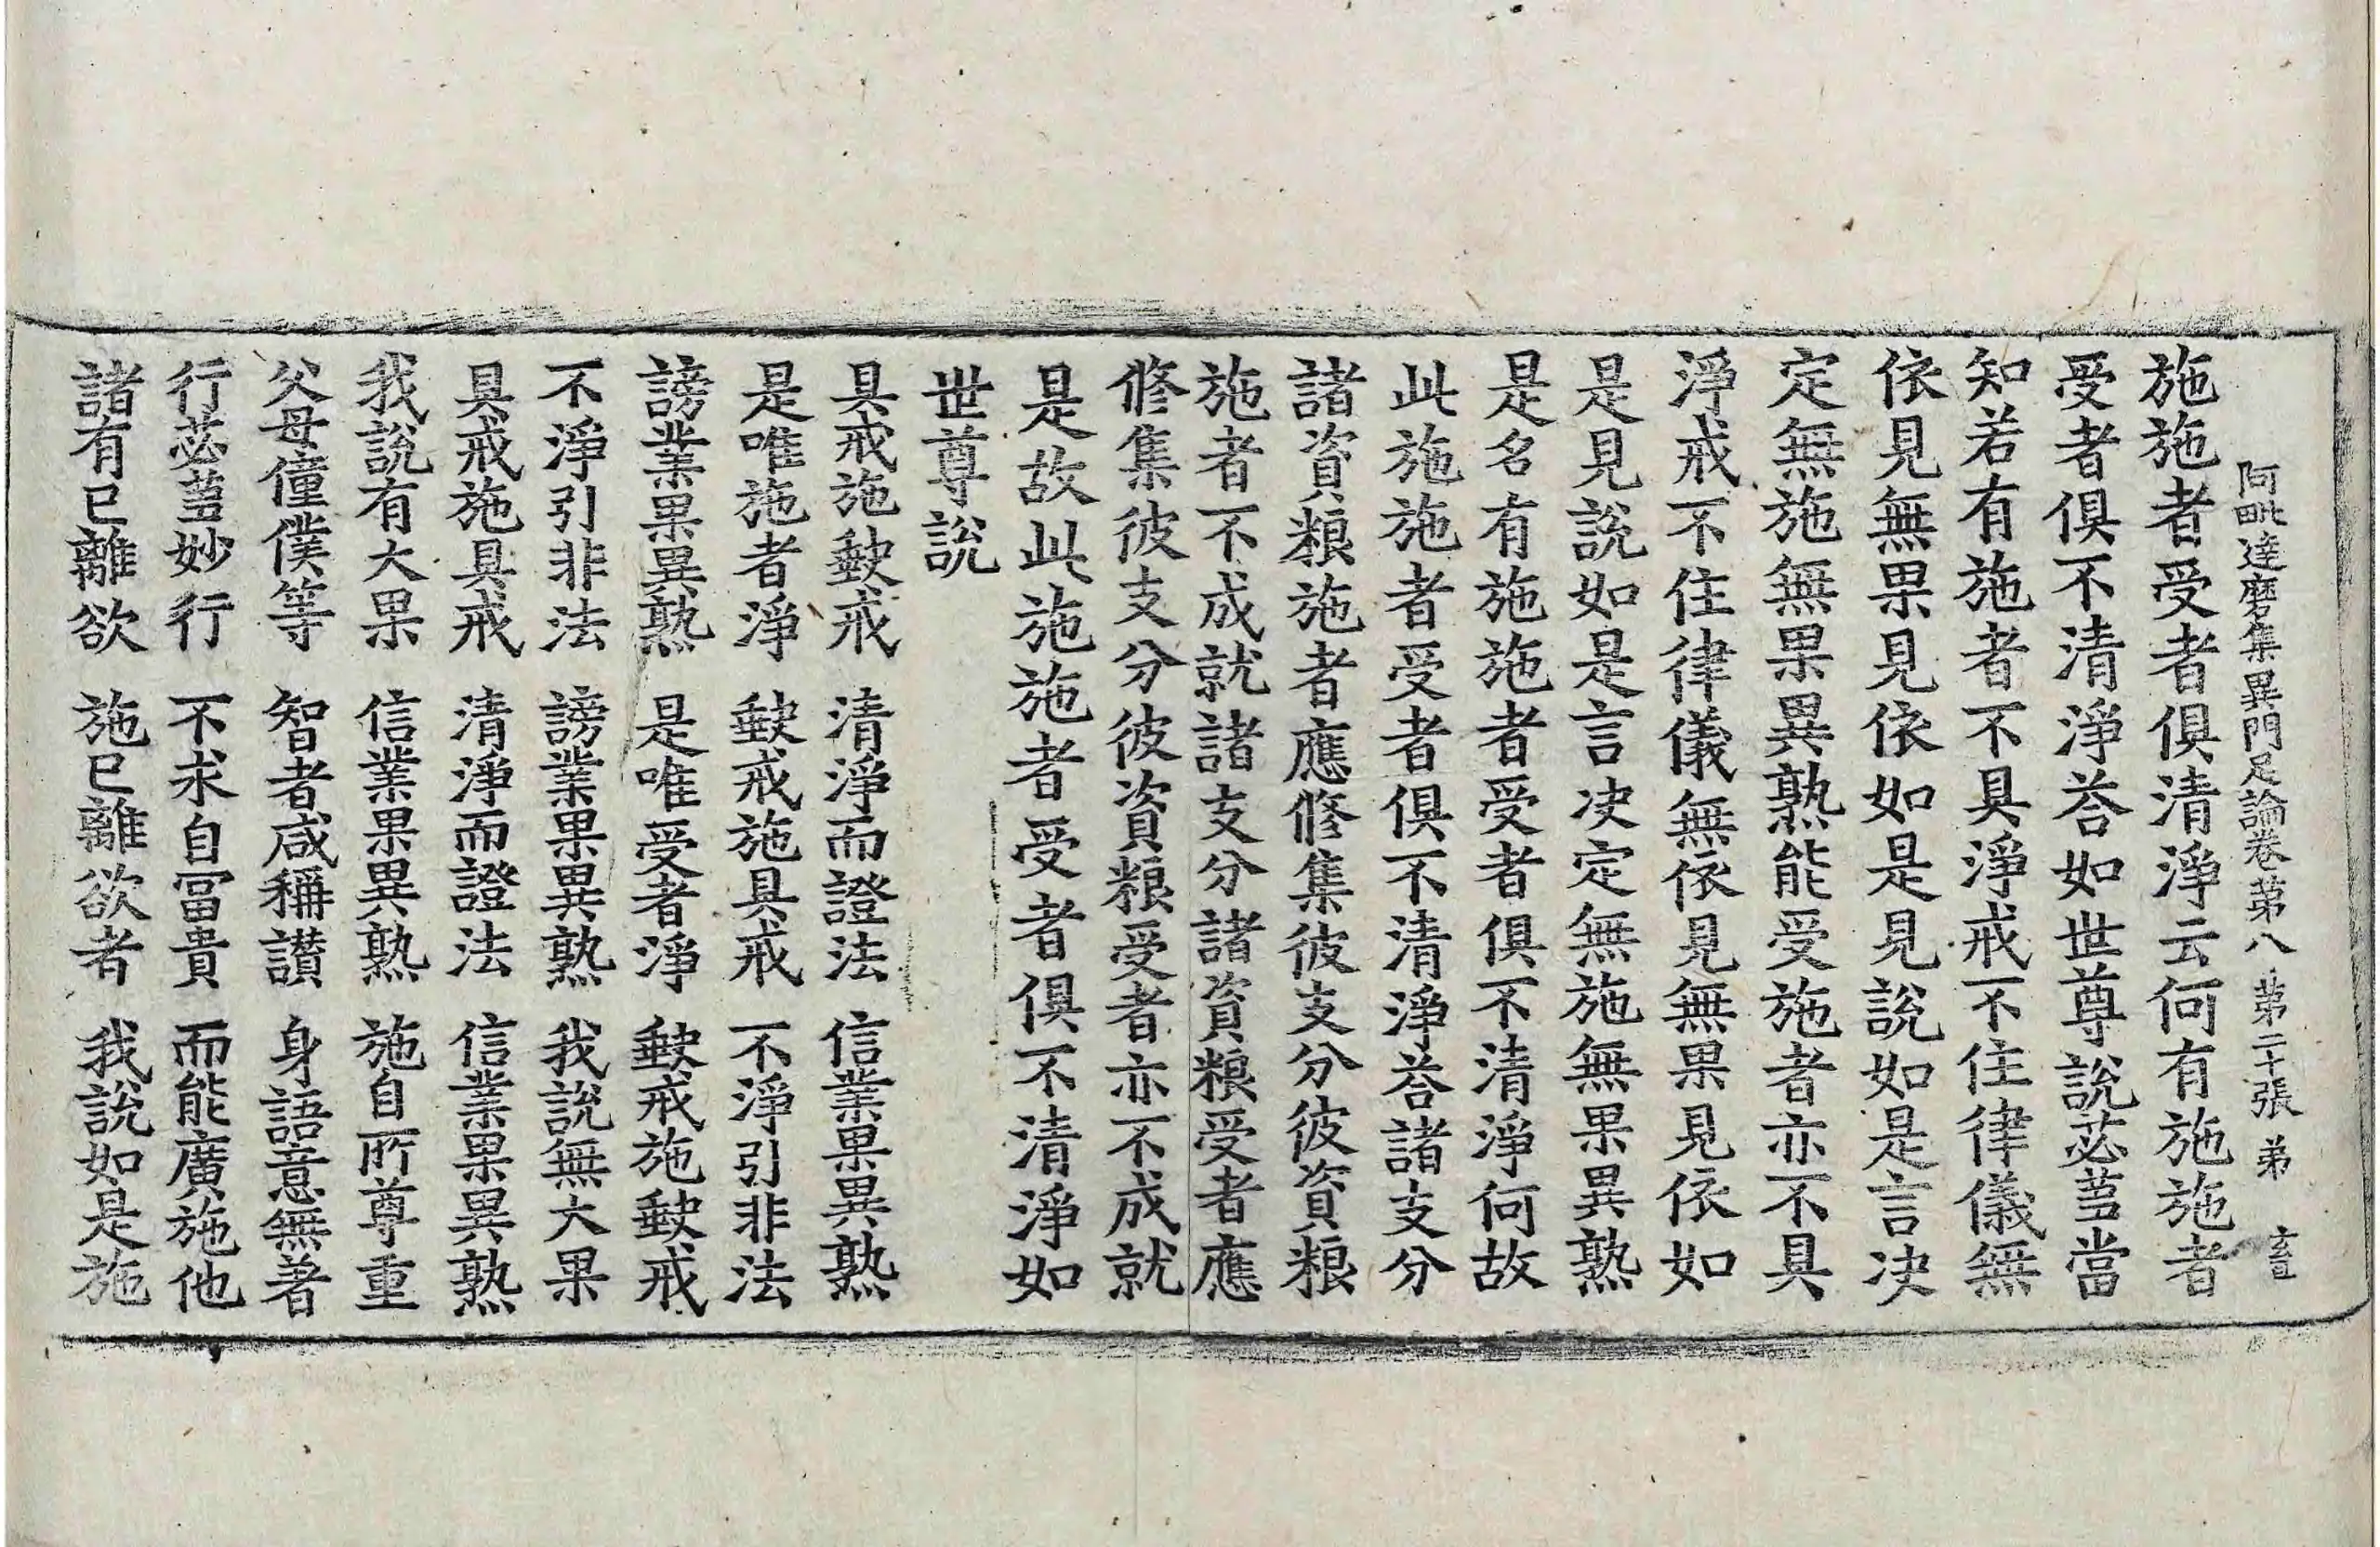 施施者受者俱清淨云何有施施者
阿毗達磨集異門足論卷苐八 苐二十張 弟
受者俱不清淨荅如世尊說苾蒭當
知若有施者不具淨戒不住律儀無
依見無果見依如是見說如是言決
定無施無果異熟能受施者亦不具
淨戒不住律儀無依見無果見依如
是見說如是言决定無施無果異熟
是名有施施者受者俱不清淨何故
此施施者受者俱不清淨荅諸支分
諸資粮施者應修集彼支分彼資粮
施者不成就諸支分諸資粮受者應
修集彼支分彼資粮受者亦不成就
是故此施施者受者俱不清淨如
世尊說
具戒施缺戒 清淨而證法 信業果異熟
是唯施者淨 缺戒施具戒 不淨引非法
謗業果異熟 是唯受者淨 缺戒施缺戒
不淨引非法 謗業果異熟 我說無大果
具戒施具戒 清淨而證法 信業果異熟
我說有大果 信業果異熟 施自所尊重
父母僮僕等 智者咸稱讃 身語意無著
行苾蒭妙行 不求自冨貴 而能廣施他
諸有已離欲 施已離欲者 我說如是施